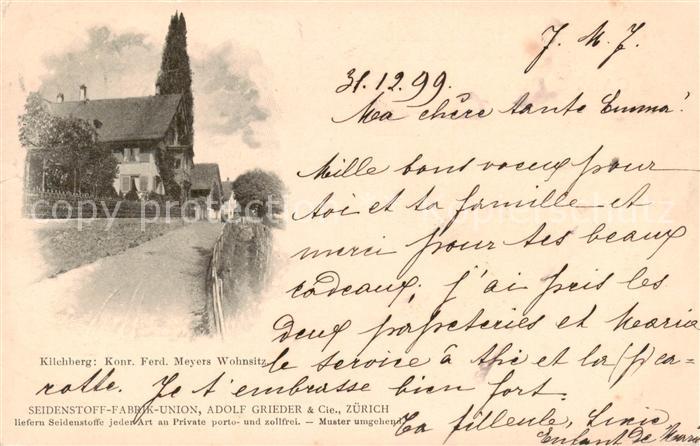 J. M. J.
31.12.99.
Ma chère tante Emma!
Mille bons voeux pour
toi et ta famille et
merci pour tes beaux
cadeaux; j'ai pris les
deux papeteries et Marie
le service à thé et la
rotte. Je t'embrasse bien fort.
Ta filleule,
Enfant de
Kilchberg: Konr. Ferd. Meyers Wohnsitz
SEIDENSTOFF-FABRIK-UNION, ADOLF GRIEDER & Cie., ZÜRICH
liefern Seidenstoffe jeder Art an Private porto- und zollfrei. — Muster umgehend.
copyright kopierschutz